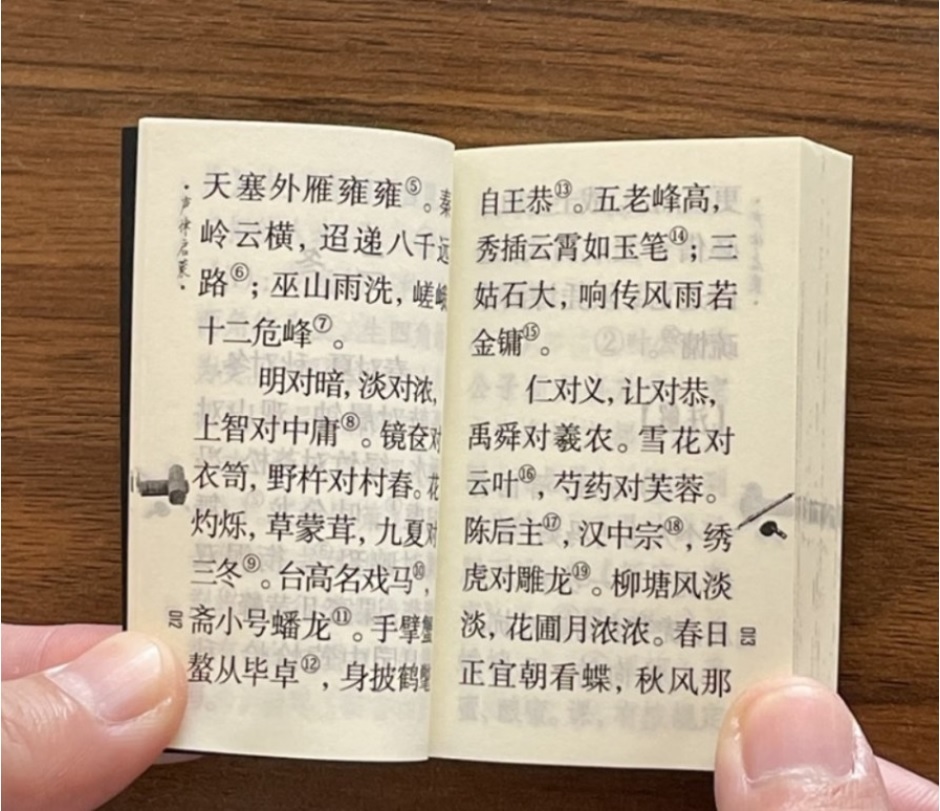 声律启蒙
天塞外雁雍雍⑤。秦
岭云横，迢递八千远
路⑥；巫山雨洗，嵯峨
十二危峰⑦。
明对暗，淡对浓，
上智对中庸⑧。镜奁对
衣笥，野杵对村舂。花
灼烁，草蒙茸，九夏对
三冬⑨。台高名戏马⑩，
斋小号蟠龙⑪。手擘蟹
螯从毕卓⑫，身披鹤氅
012
自王恭⑬。五老峰高，
秀插云霄如玉笔⑭；三
姑石大，响传风雨若
金镛⑮。
仁对义，让对恭，
禹舜对羲农。雪花对
云叶⑯，芍药对芙蓉。
陈后主⑰，汉中宗⑱，绣
虎对雕龙⑲。柳塘风淡
淡，花圃月浓浓。春日
正宜朝看蝶，秋风那
013